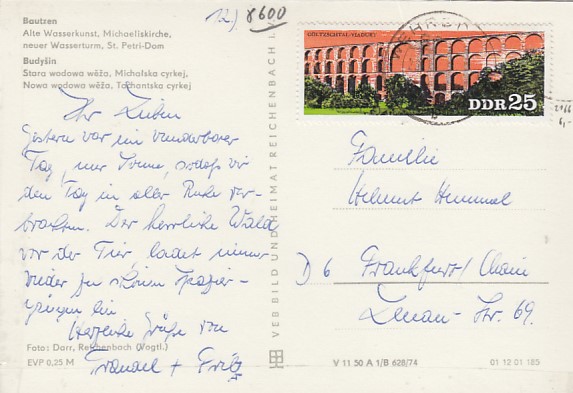 Bautzen
Alte Wasserkunst, Michaeliskirche,
neuer Wasserturm, St. Petri-Dom
Budyšin
Stara wodowa wěža, Michałska cyrkej,
Nowa wodowa wěža, Tachantska cyrkej
12) 8600
Ihr Lieben
Gestern war ein wunderbarer
Tag, nur Sonne, sodaß wir
den Tag in aller Ruhe ver-
brachten. Der herrliche Wald
vor der Tür, ladet immer
wieder zu schönen Spazier-
gängen ein
Herzliche Grüße von
Traudel + Fritz
Foto: Darr, Reichenbach (Vogtl.)
EVP 0,25 M
VEB BILD UND HEIMAT REICHENBACH I. V.
GÖLTZSCHTAL-VIADUKT
DDR 25
Familie
Helmut Hummel
D 6 Frankfurt/Main
Lenau-Str. 69.
V 11 50 A 1/B 628/74
01 12 01 185